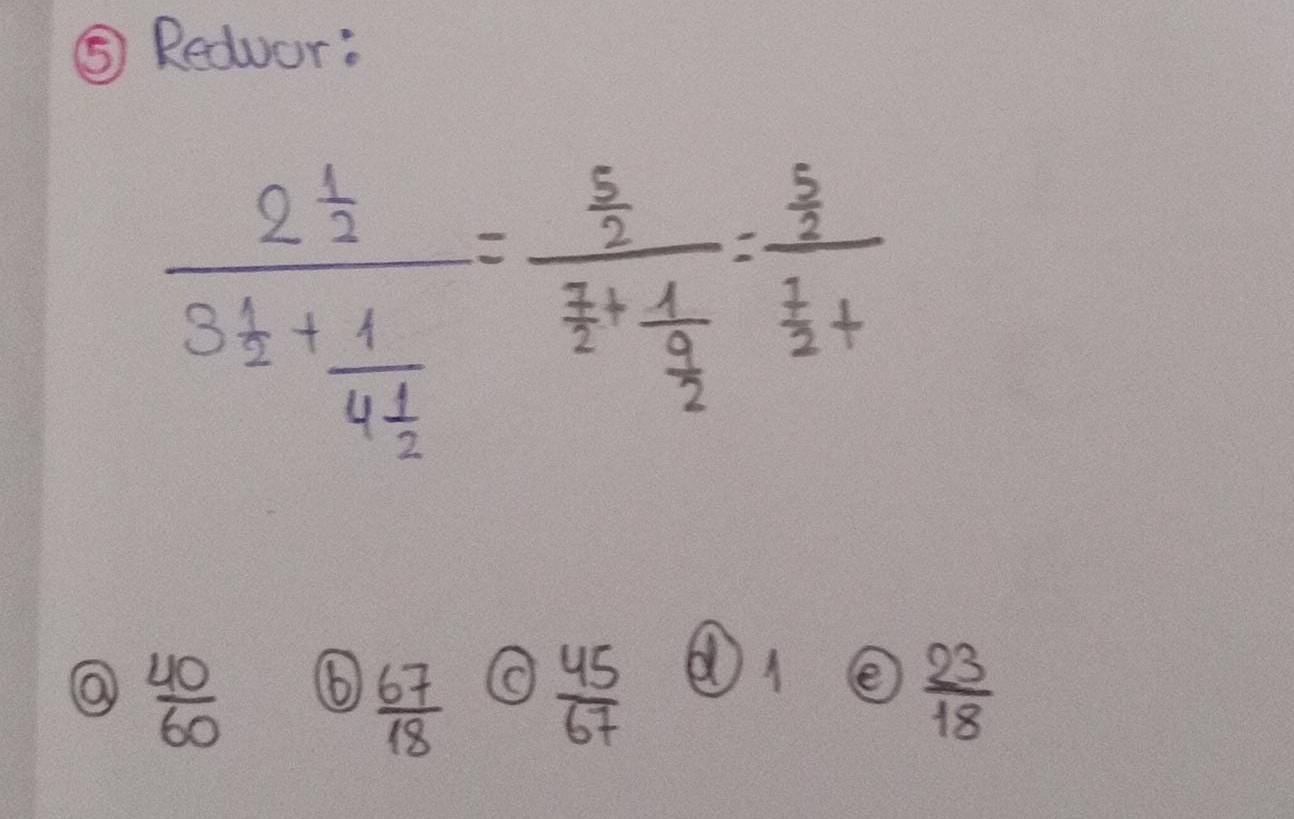 ⑤ Reducir:
2 1/2 / (3 1/2 + 1/(4 1/2)) = (5/2) / (7/2 + 1/(9/2)) = (5/2) / (7/2 +
ⓐ 40/60 ⓑ 67/18 ⓒ 45/67 ⓓ 1 ⓔ 23/18